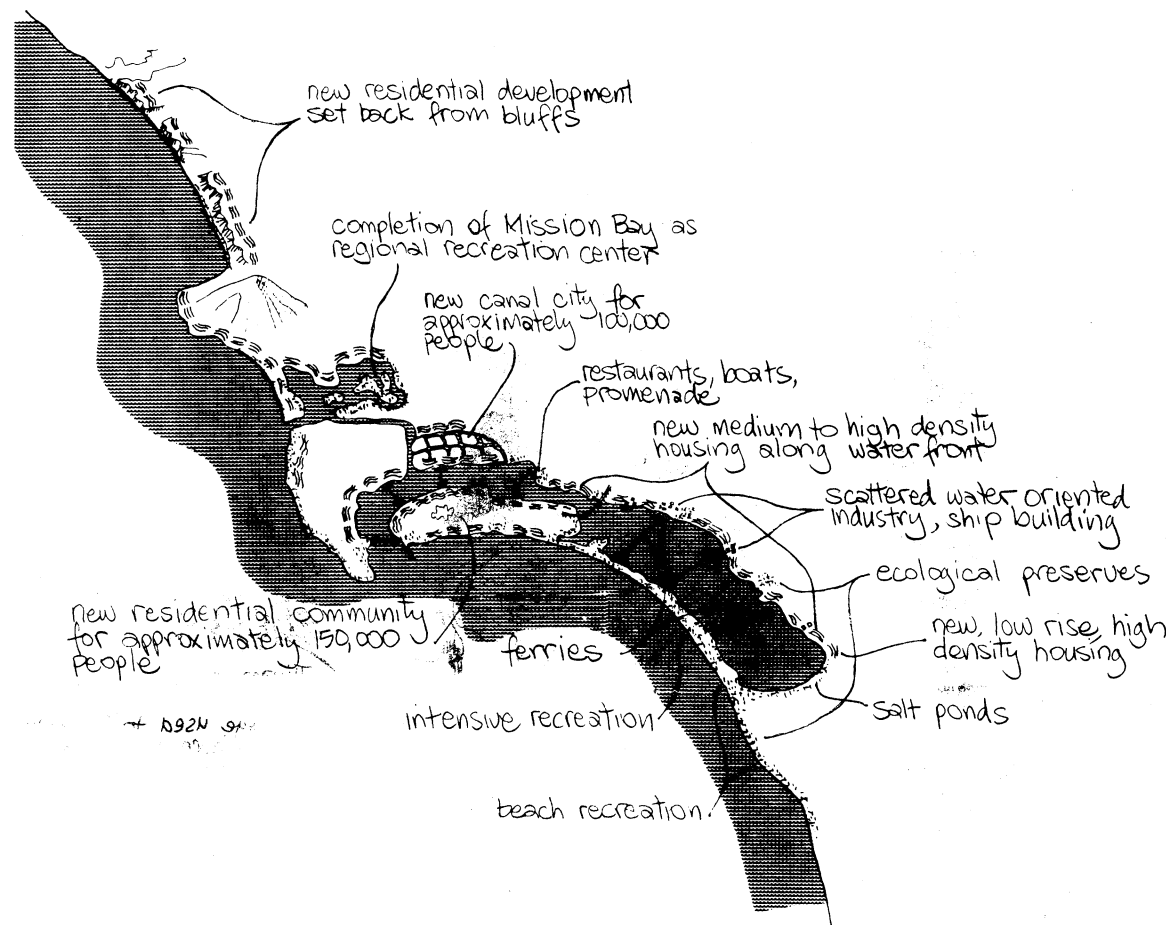 new residential development
set back from bluffs
completion of Mission Bay as
regional recreation center
new canal city for
approximately 100,000
people
restaurants, boats,
promenade
new medium to high density
housing along waterfront
scattered water oriented
industry, ship building
ecological preserves
new residential community
for approximately 150,000
people
ferries
new, low rise, high
density housing
intensive recreation
salt ponds
beach recreation